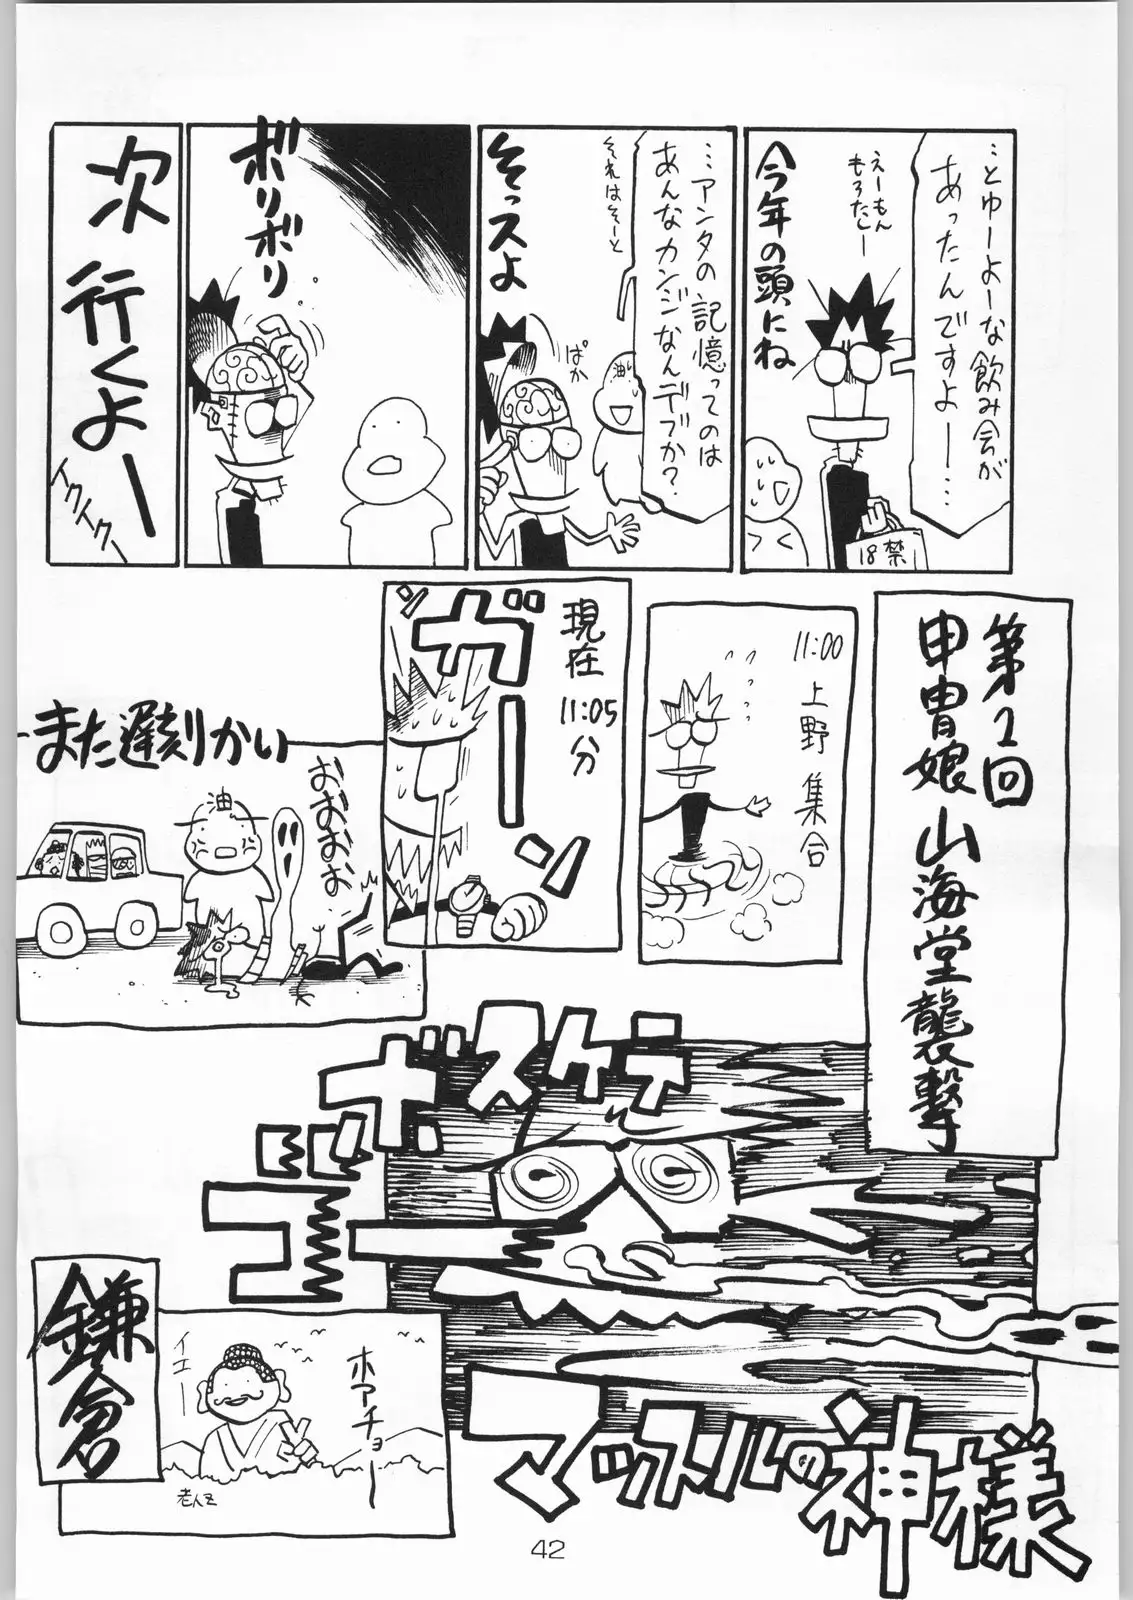 …とゆーよーな飲み会が
あったんですよー…
えーもん
もろたしー
今年の頭にね
18禁
…アンタの記憶ってのは
あんなカンジなんデスか?
それはそーと
そっスよ
ぱか
油
ボリボリ
次行くよー
イクイクー
第1回
甲冑娘山海堂襲撃
11:00
上野集合
現在
11:05分
ガーン
また遅刻かい
油
おおおお
ゴー
ボスケテ
マッスルの神様
鎌倉
イエー
ホアチョー
老人Z
42